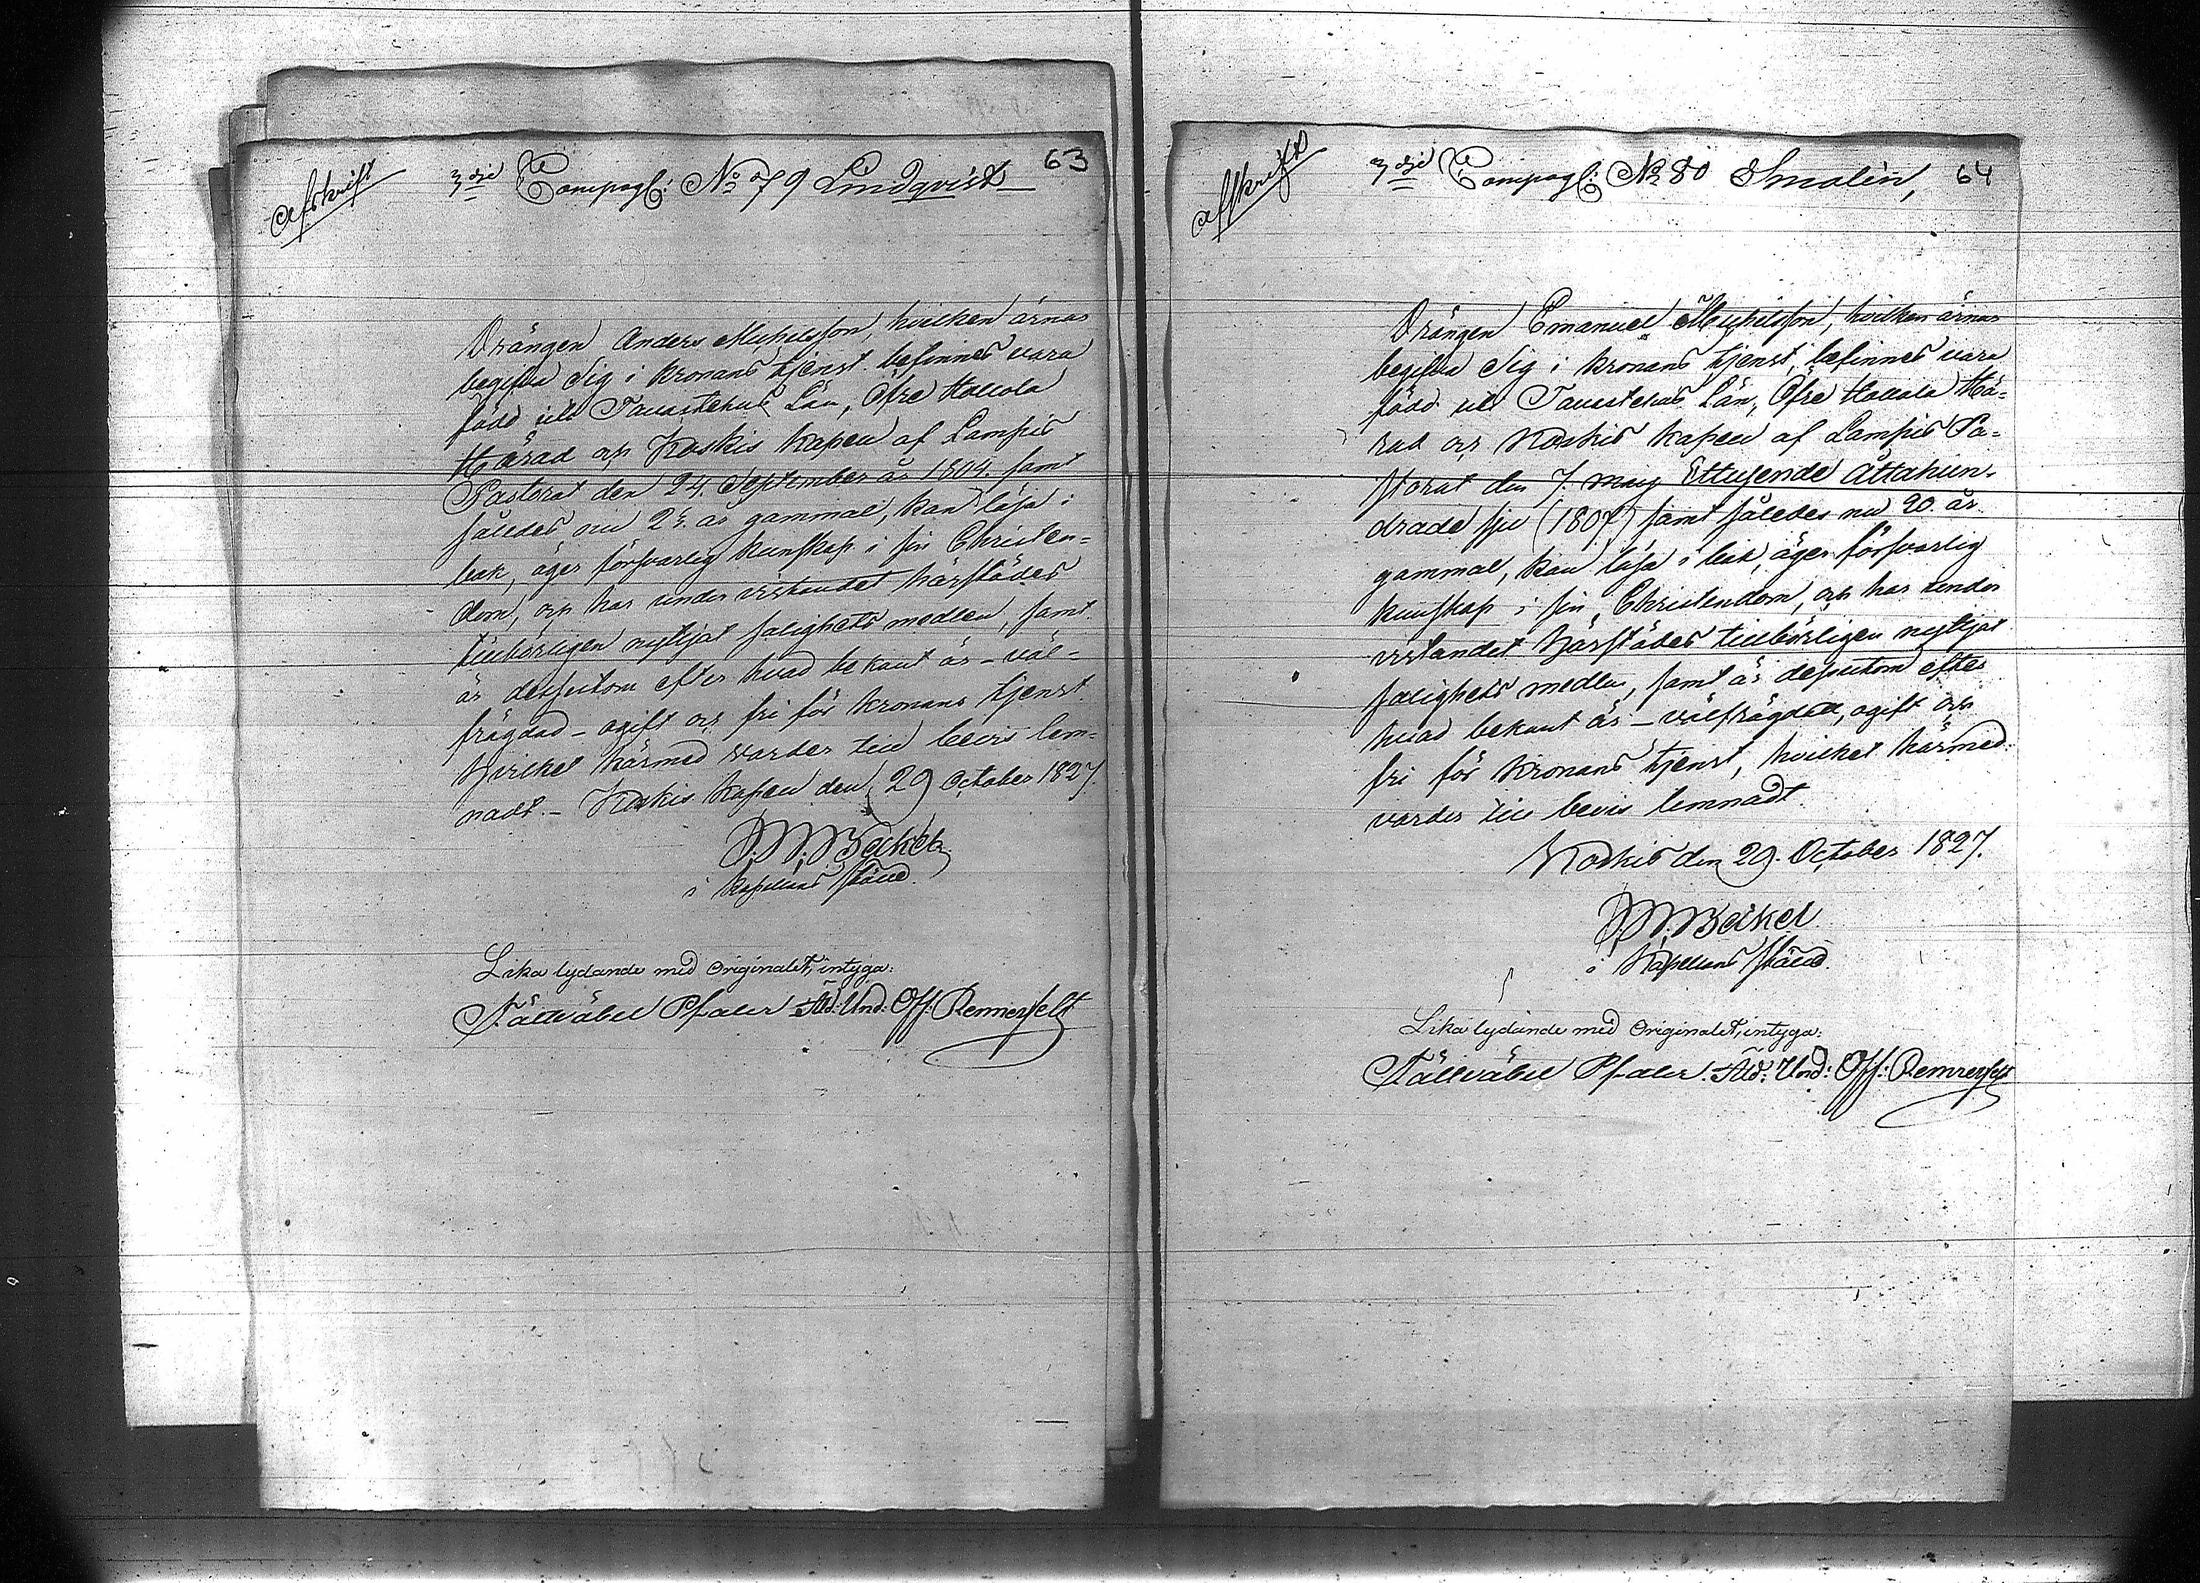 Afskrift
3dje Compagt: No 79 Lindqvist
63
Drängen Anders Michelsson, hvilken ärnar
begifva Sig i Kronans tjenst, befinnes vara
född uti Tavastehus Län, Öfre Hollola
Härad och Koskis kapell af Lampis
Pastorat den 24. September år 1804. samt
således nu 23. år gammal, kan läsa i
bok, äger försvarlig kunskap i sin Christen=
dom, och har under vistandet härstädes
tillbörligen nyttjat salighets medlen, samt
är dessutom efter hvad bekant är – väl=
frägdad – ogift och fri för Kronans tjenst
Hvilket härmed varder till bevis lem=
nadt. – Koskis Kapell den 29 October 1827.
Beckel
i Kapellans ställe.
Lika lydande med Originalet, intyga:
Fältväbel Pfaler Åld: Und: Off: Rennerfelt
Afskrift
3dje Compagt: No 80 Smolin,
64
Drängen Emanuel Michelsson, hvilken ärnar
begifva Sig i Kronans tjenst, befinnes vara
född uti Tavastehus Län, Öfre Hollola Hä=
rad och Koskis kapell af Lampis Pa=
storat den 7. Maij Ettusende Åttahun=
drade sju (1807) samt således nu 20. år
gammal, kan läsa i bok, äger försvarlig
kunskap i sin Christendom, och har under
vistandet härstädes tillbörligen nyttjat
salighets medlen, samt är dessutom efter
hvad bekant är – välfrägdad, ogift och
fri för Kronans tjenst, hvilket härmed
varder till bevis lemnadt.
Koskis den 29. October 1827.
Beckel
i Kapellans ställe.
Lika lydande med Originalet, intyga:
Fältväbel Pfaler. Åld: Und: Off: Rennerfelt